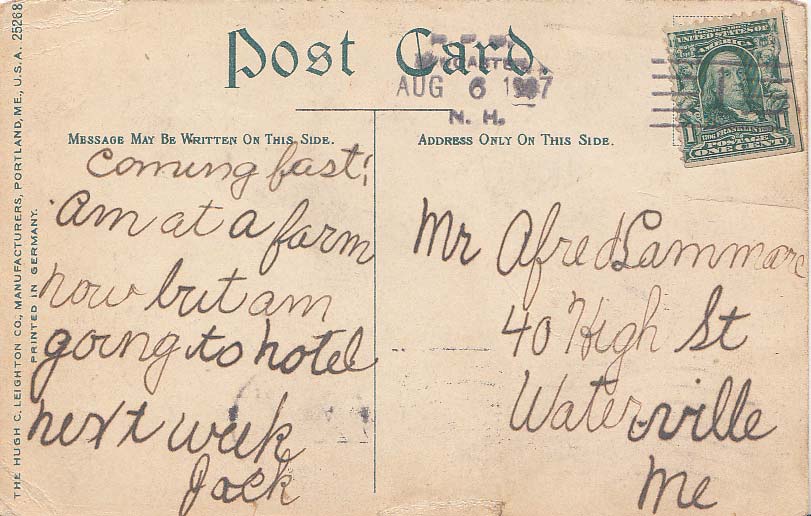 THE HUGH C. LEIGHTON CO., MANUFACTURERS, PORTLAND, ME., U.S.A. 25268
PRINTED IN GERMANY.
Post Card.
AUG 6 1907
N. H.
MESSAGE MAY BE WRITTEN ON THIS SIDE.
coming fast!
Am at a farm
now but am
going to hotel
next week
Jack
ADDRESS ONLY ON THIS SIDE.
UNITED STATES OF
AMERICA
1
FRANKLIN
POSTAGE
ONE CENT
Mr Afred Lammare
40 High St
Waterville
Me